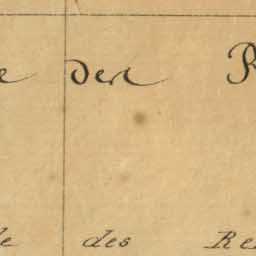 e der R
de des Re